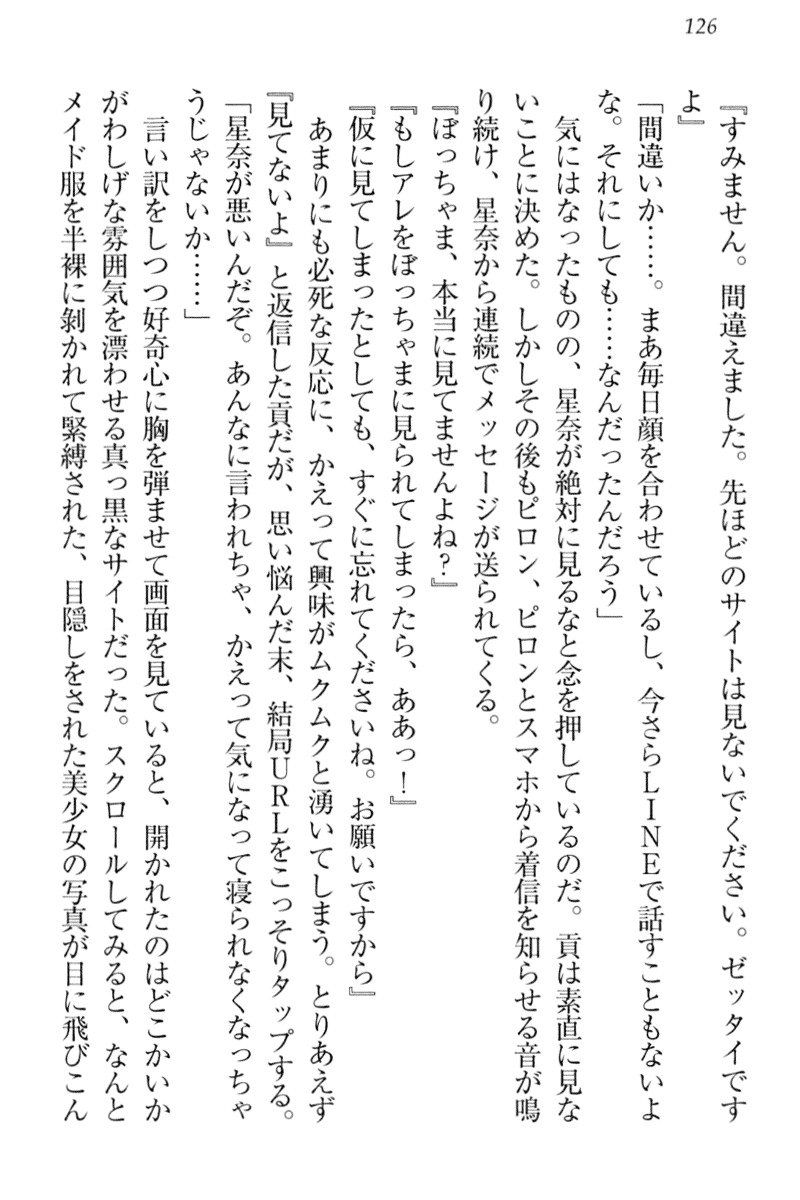 126
『すみません。間違えました。先ほどのサイトは見ないでください。ゼッタイです
よ』
「間違いか……。まあ毎日顔を合わせているし、今さらLINEで話すこともないよ
な。それにしても……なんだったんだろう」
　気にはなったものの、星奈が絶対に見るなと念を押しているのだ。貢は素直に見な
いことに決めた。しかしその後もピロン、ピロンとスマホから着信を知らせる音が鳴
り続け、星奈から連続でメッセージが送られてくる。
『ぼっちゃま、本当に見てませんよね？』
『もしアレをぼっちゃまに見られてしまったら、ああっ！』
『仮に見てしまったとしても、すぐに忘れてくださいね。お願いですから』
　あまりにも必死な反応に、かえって興味がムクムクと湧いてしまう。とりあえず
『見てないよ』と返信した貢だが、思い悩んだ末、結局URLをこっそりタップする。
「星奈が悪いんだぞ。あんなに言われちゃ、かえって気になって寝られなくなっちゃ
うじゃないか……」
　言い訳をしつつ好奇心に胸を弾ませて画面を見ていると、開かれたのはどこかいか
がわしげな雰囲気を漂わせる真っ黒なサイトだった。スクロールしてみると、なんと
メイド服を半裸に剥かれて緊縛された、目隠しをされた美少女の写真が目に飛びこん